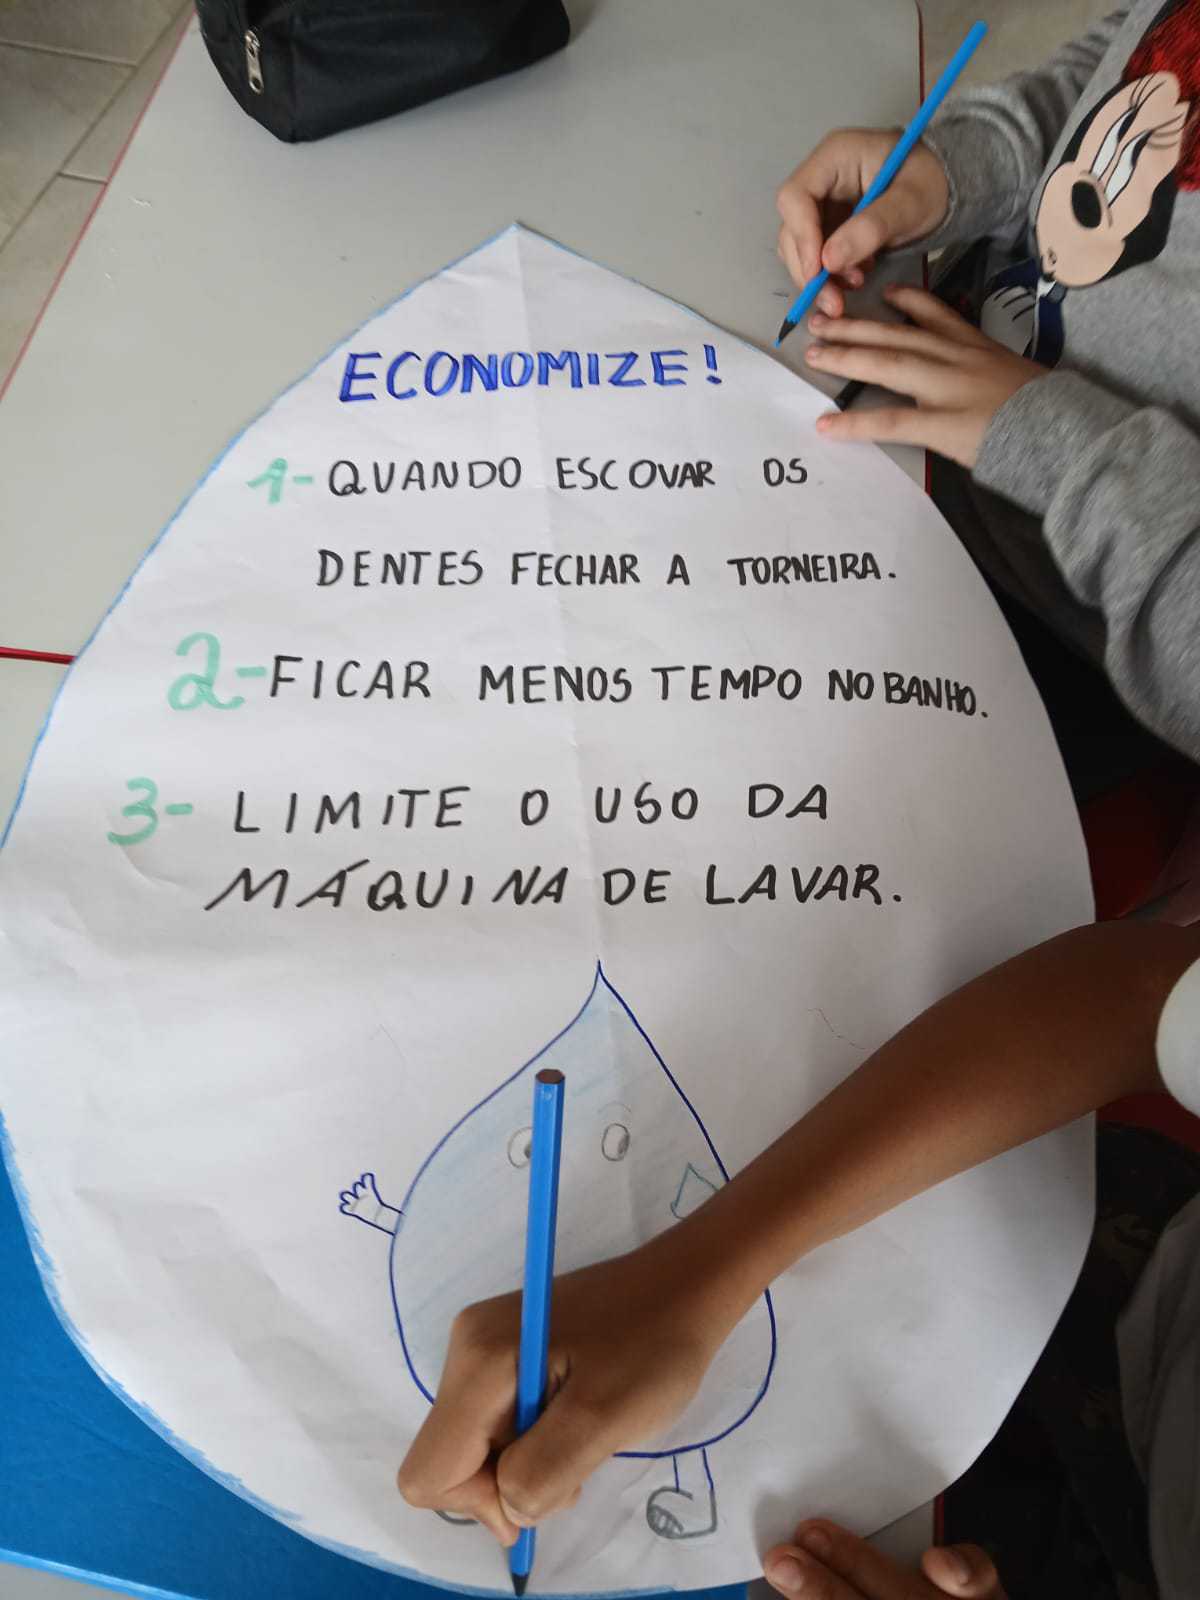 ECONOMIZE!
1- QUANDO ESCOVAR OS
DENTES FECHAR A TORNEIRA.
2- FICAR MENOS TEMPO NO BANHO.
3- LIMITE O USO DA
MÁQUINA DE LAVAR.